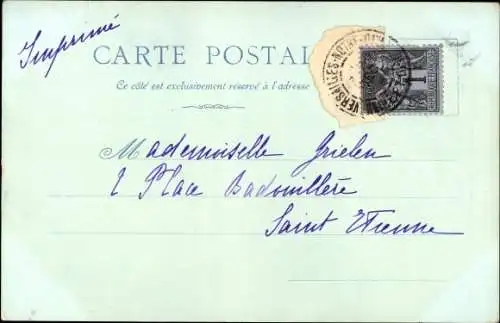 Imprimé
CARTE POSTAL
Ce côté est exclusivement réservé à l'adresse
VERSAILLES-NOTRE
1
Mademoiselle Grielen
2 Place Badouillère
Saint Etienne